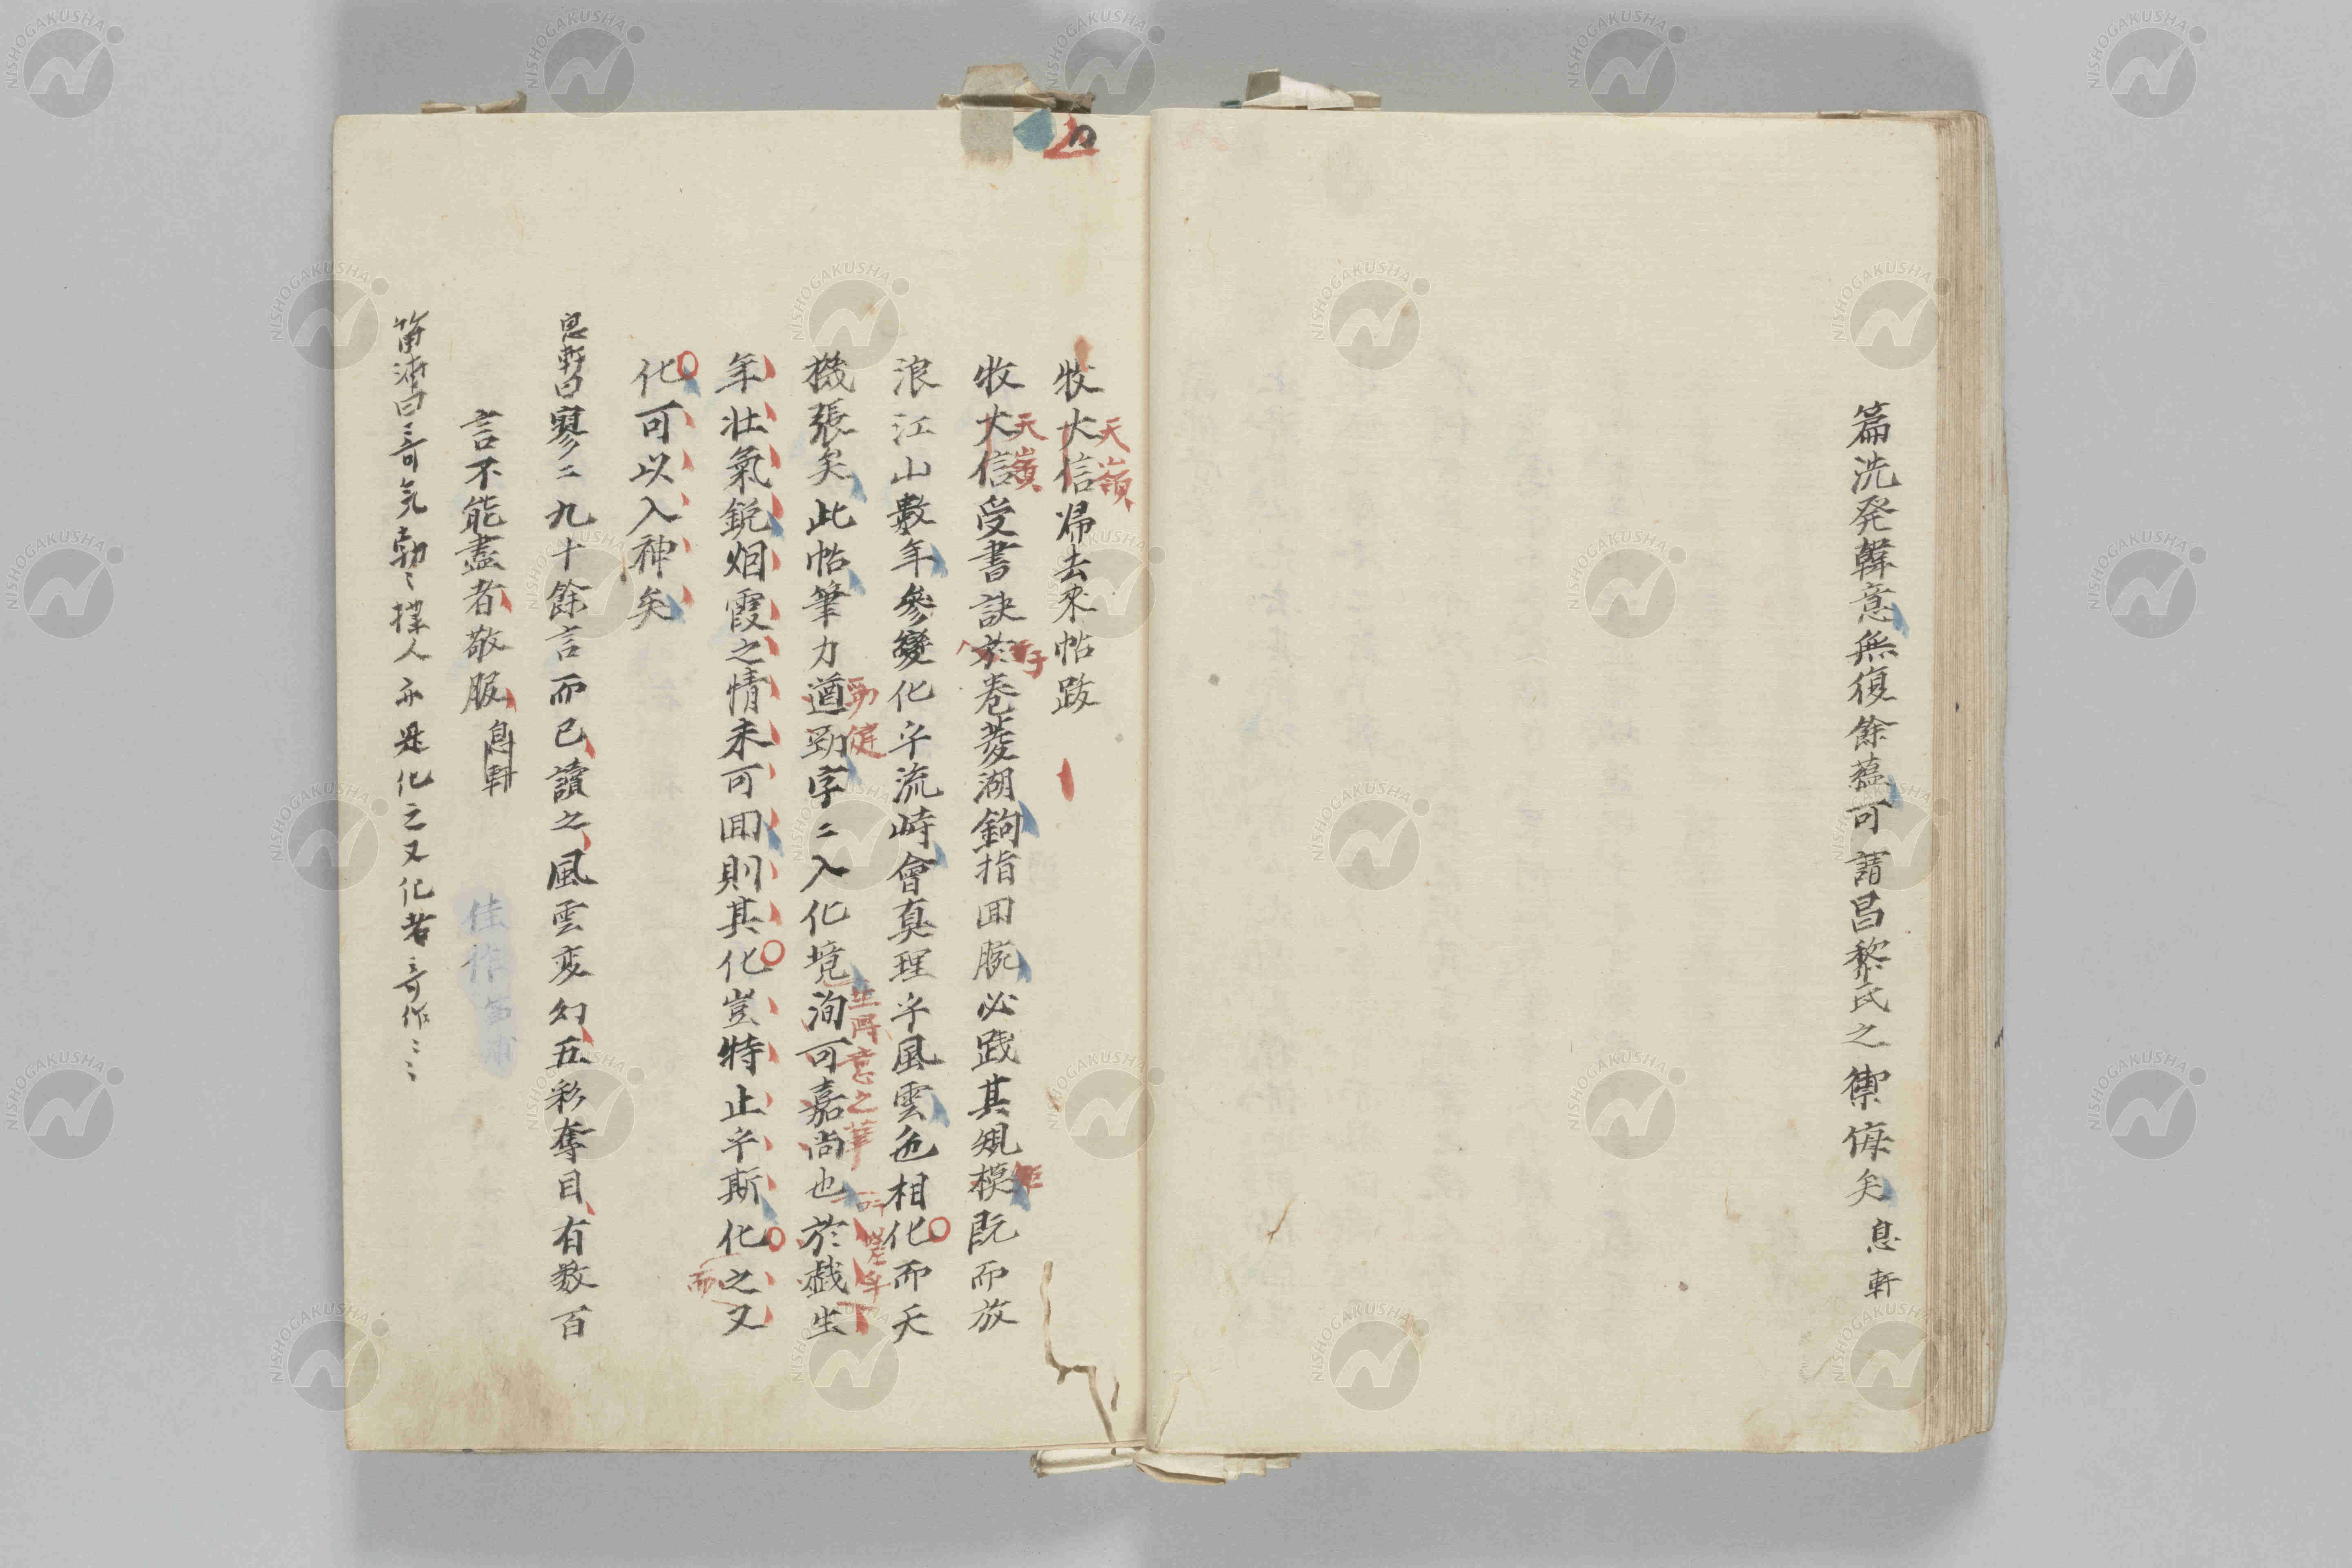 篇洗発韓意無復餘蘊可謂昌黎氏之禦侮矣 息軒
牧大信帰去来帖跋
天嶺
牧大信受書訣於巻菱湖鉤指囬腕必踐其規模既而放
天嶺
浪江山數年參變化乎流峙會真理乎風雲色相化而天
機張矣此帖筆力遒勁字〻入化境洵可嘉尚也於戯生
勁健
年壮氣鋭烟霞之情未可囬則其化豈特止乎斯化之又
而
化可以入神矣
息軒曰寥〻九十餘言而已讀之風雲変幻五彩奪目有数百
言不能盡者敬服 息軒
佳作
曰奇気勃〻撲人亦是化之又化者奇作〻〻
NISHOGAKUSHA